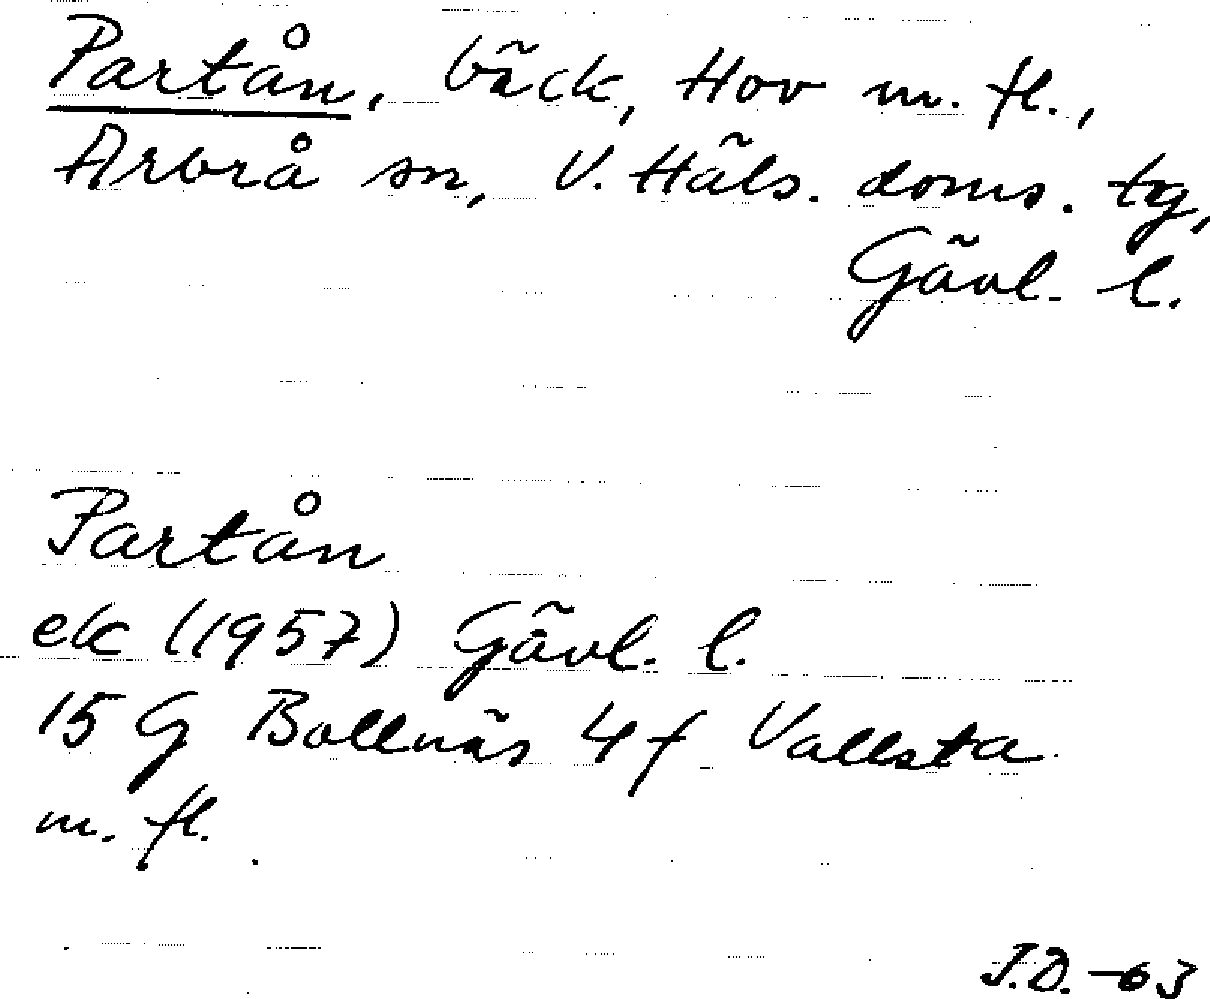 Partån, bäck, Hov m. fl.,
Arbrå sn, V. Häls. doms. tg,
Gävl. l.
Partån
ek (1957) Gävl. l.
15 G Bollnäs 4 f Vallsta
m. fl.
J.D. -63